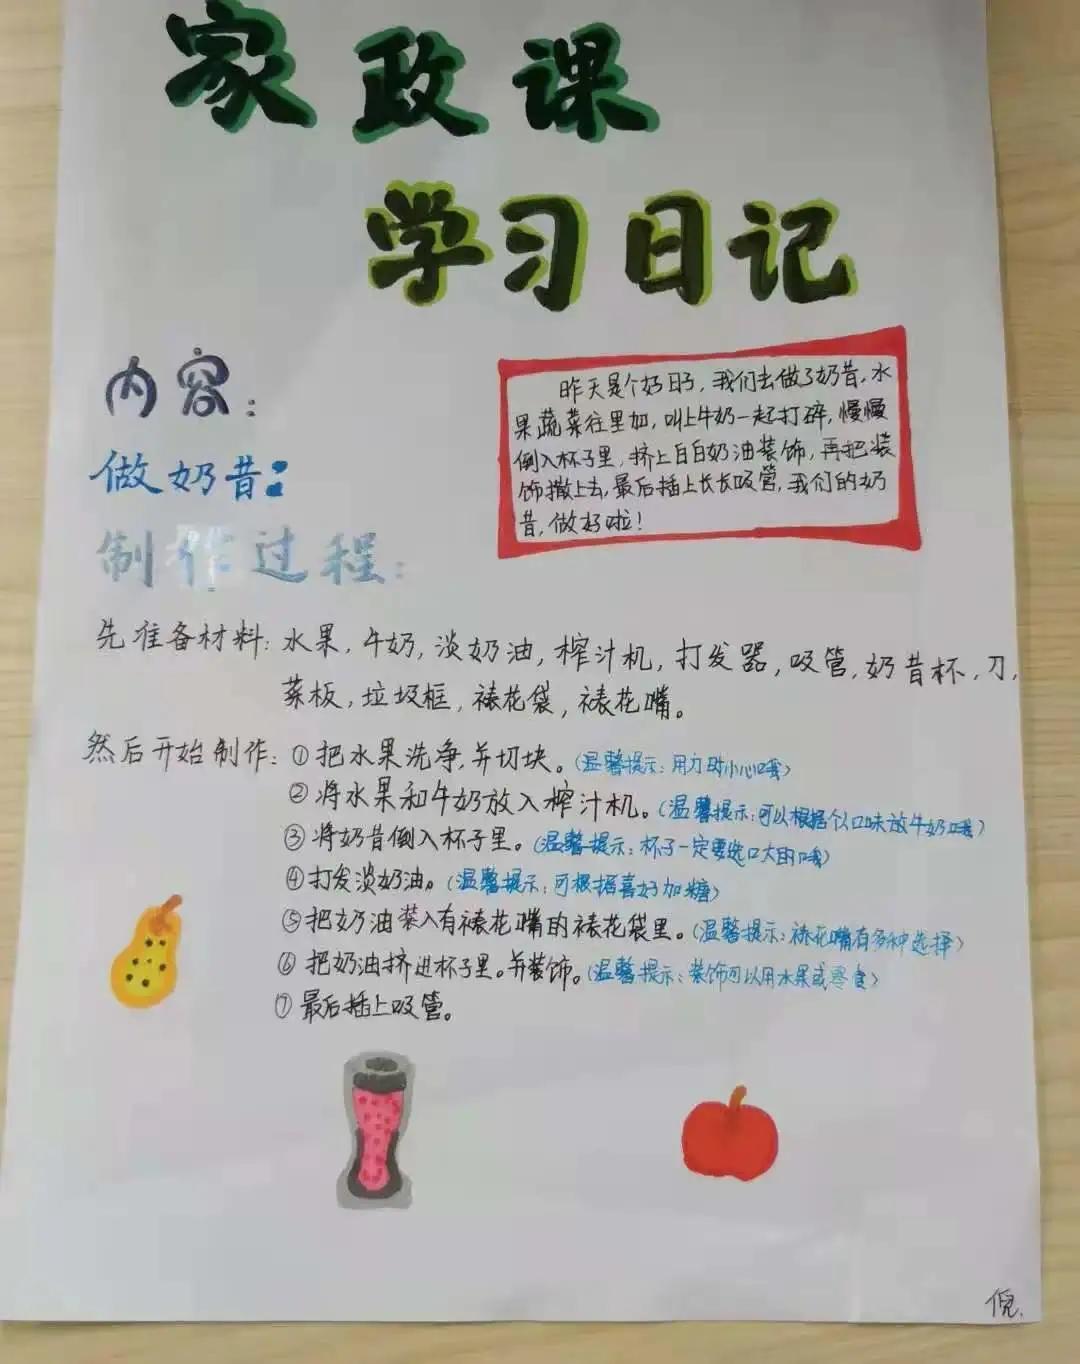 家政课
学习日记
内容：
做奶昔：
制作过程：
昨天是个好日子，我们去做了奶昔，水
果蔬菜往里加，叫上牛奶一起打碎，慢慢
倒入杯子里，挤上白白奶油装饰，再把装
饰撒上去，最后插上长长吸管，我们的奶
昔，做好啦！
先准备材料：水果，牛奶，淡奶油，榨汁机，打发器，吸管，奶昔杯，刀，
菜板，垃圾框，裱花袋，裱花嘴。
然后开始制作：①把水果洗净，并切块。（温馨提示：用刀时小心哦）
②将水果和牛奶放入榨汁机。（温馨提示：可以根据个人口味放牛奶哦）
③将奶昔倒入杯子里。（温馨提示：杯子一定要选口大的哦）
④打发淡奶油。（温馨提示：可根据喜好加糖）
⑤把奶油装入有裱花嘴的裱花袋里。（温馨提示：裱花嘴有多种选择）
⑥把奶油挤进杯子里。并装饰。（温馨提示：装饰可以用水果或零食）
⑦最后插上吸管。
倪.